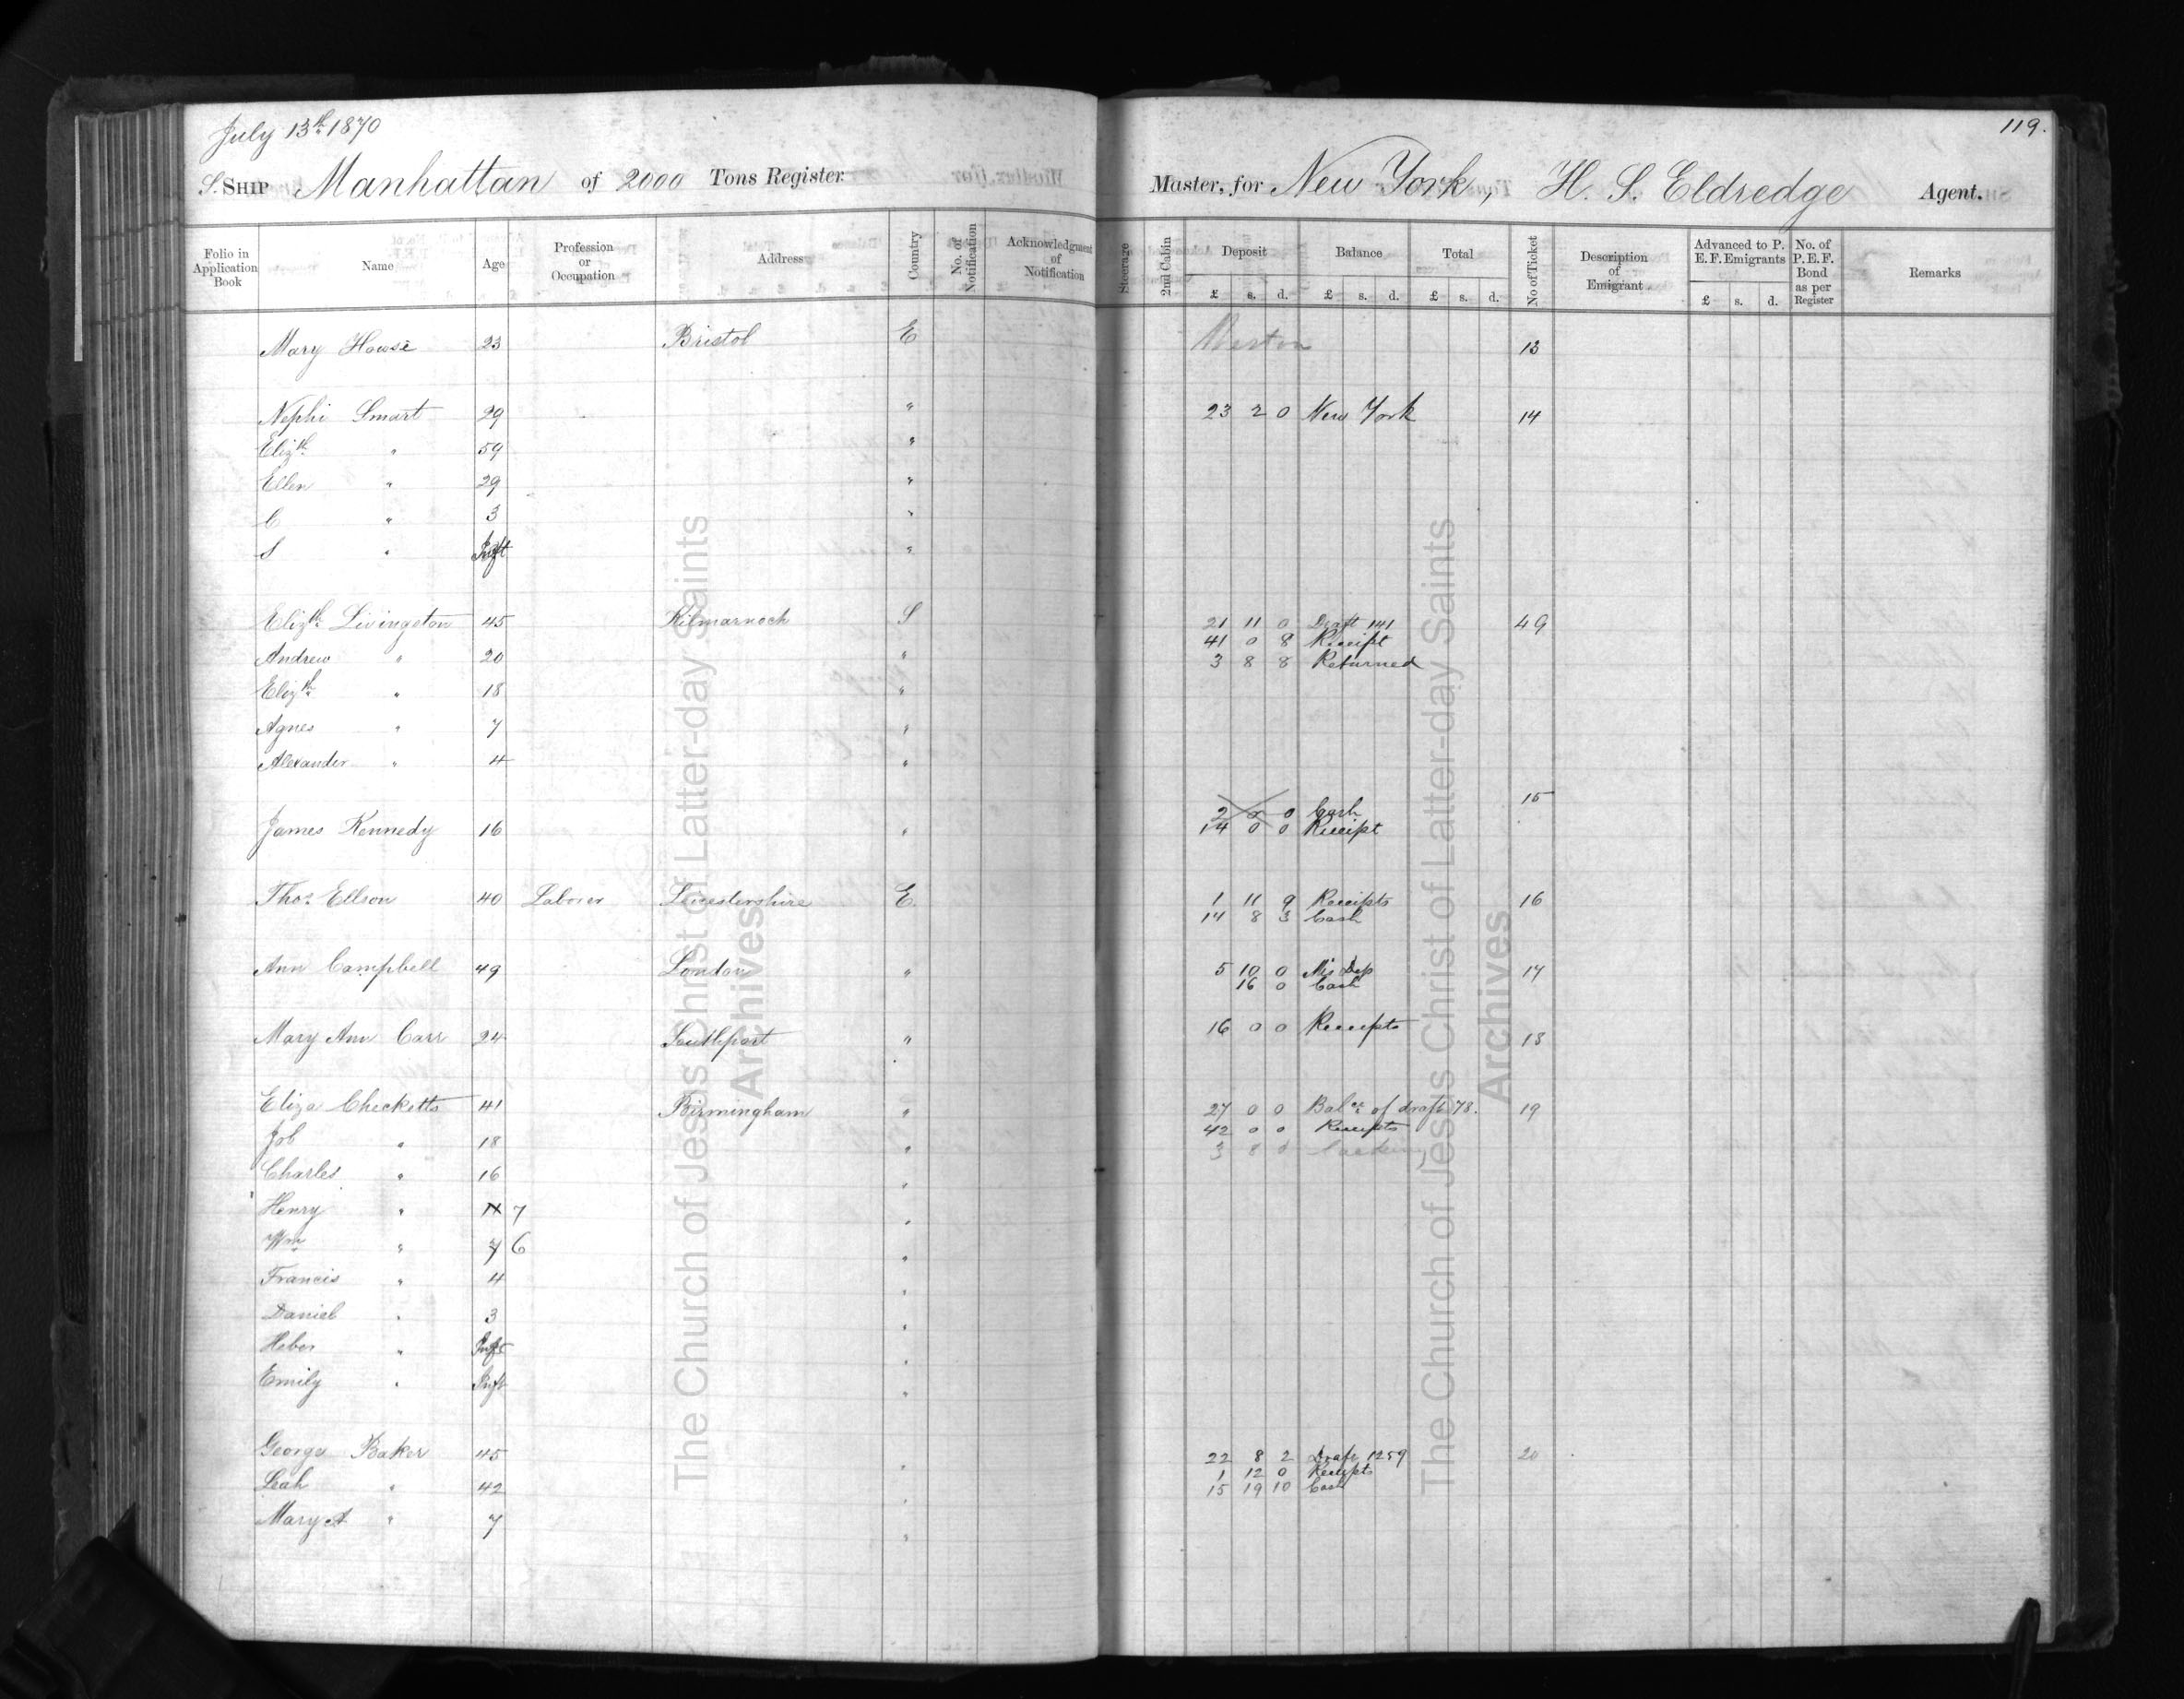 July 13th 1870
119.
S. SHIP Manhattan of 2000 Tons Register
Master, for New York, H. S. Eldredge Agent.
Folio in Application Book Name Age Profession or Occupation Address Country No. of Notification Acknowledgment of Notification Steerage 2nd Cabin Deposit £ s. d. Balance £ s. d. Total £ s. d. No of Ticket Description of Emigrant Advanced to P. E. F. Emigrants £ s. d. No. of P. E. F. Bond as per Register Remarks
Mary Howse 23 Bristol E 13
Nephi Smart 29 " 23 2 0 New York 14
Elizth " 59 "
Ellen " 29 "
C " 3 "
S " Inft "
Elizth Livingston 45 Kilmarnock S 21 11 0 Draft 141 49
41 0 8 Receipt
Andrew " 20 " 3 8 8 Returned
Elizth " 18 "
Agnes " 7 "
Alexander " 4 "
2 0 0 Cash 15
James Kennedy 16 " 14 0 0 Receipt
Thos Ellson 40 Laborer Leicestershire E 1 11 9 Receipts 16
14 8 3 Cash
Ann Campbell 49 London " 5 10 0 Mis Dep 17
16 0 Cash
Mary Ann Carr 24 Southport " 16 0 0 Receipts 18
Eliza Checketts 41 Birmingham " 27 0 0 Balce of draft 78. 19
42 0 0 Receipts
Job " 18 " 3 8 0
Charles " 16 "
Henry " 11 7 "
Wm " 7 6 "
Francis " 4 "
Daniel " 3 "
Heber " Inft "
Emily " Inft "
George Baker 45 " 22 8 2 Draft 1259 20
1 12 0 Receipts
Leah " 42 " 15 19 10 Cash
Mary A " 7 "
The Church of Jesus Christ of Latter-day Saints
Archives
The Church of Jesus Christ of Latter-day Saints
Archives